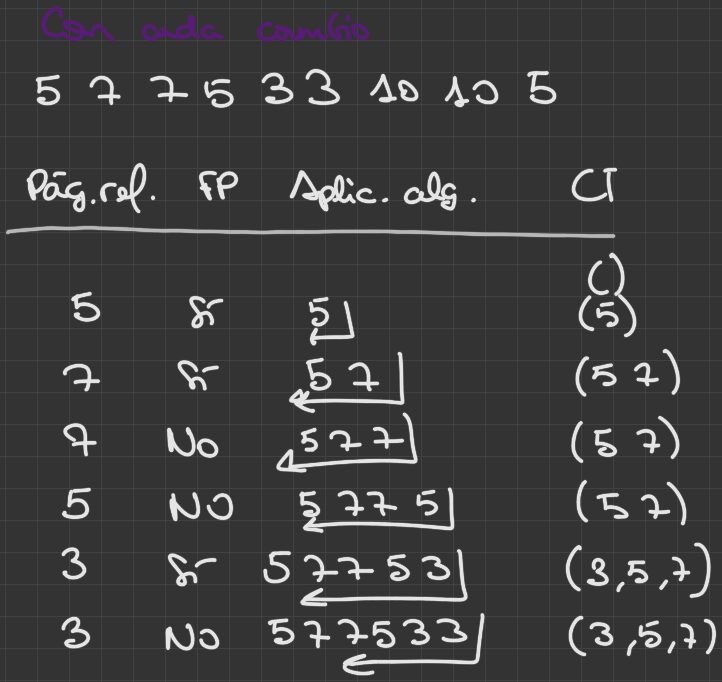 Con cada cambio
5 7 7 5 3 3 10 10 5
Pág. ref. FP Aplic. alg. CT
()
5 Sí 5 (5)
7 Sí 5 7 (5 7)
7 No 5 7 7 (5 7)
5 NO 5 7 7 5 (5 7)
3 Sí 5 7 7 5 3 (3,5,7)
3 No 5 7 7 5 3 3 (3,5,7)